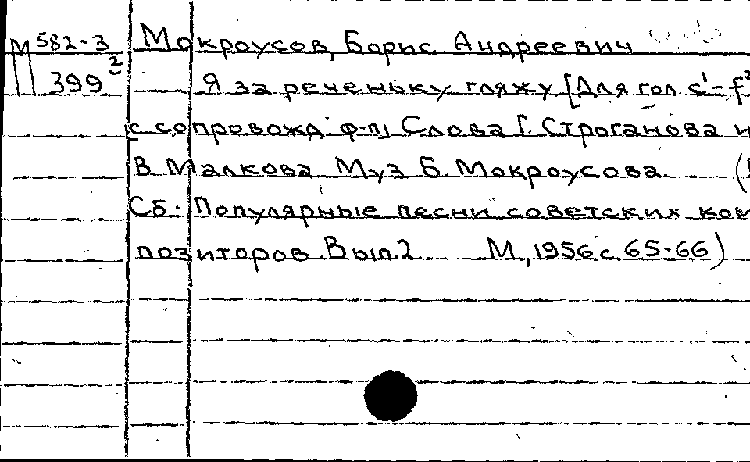 М 582-3 Мокроусов, Борис Андреевич
399² Я за реченьку гляжу [Для гол. c¹-f²
с сопровожд. ф-п] Слова Г. Строганова и
В. Малкова Муз Б. Мокроусова. (
Сб. Популярные песни советских ком
позиторов. Вып. 2 М., 1956 с. 65-66)